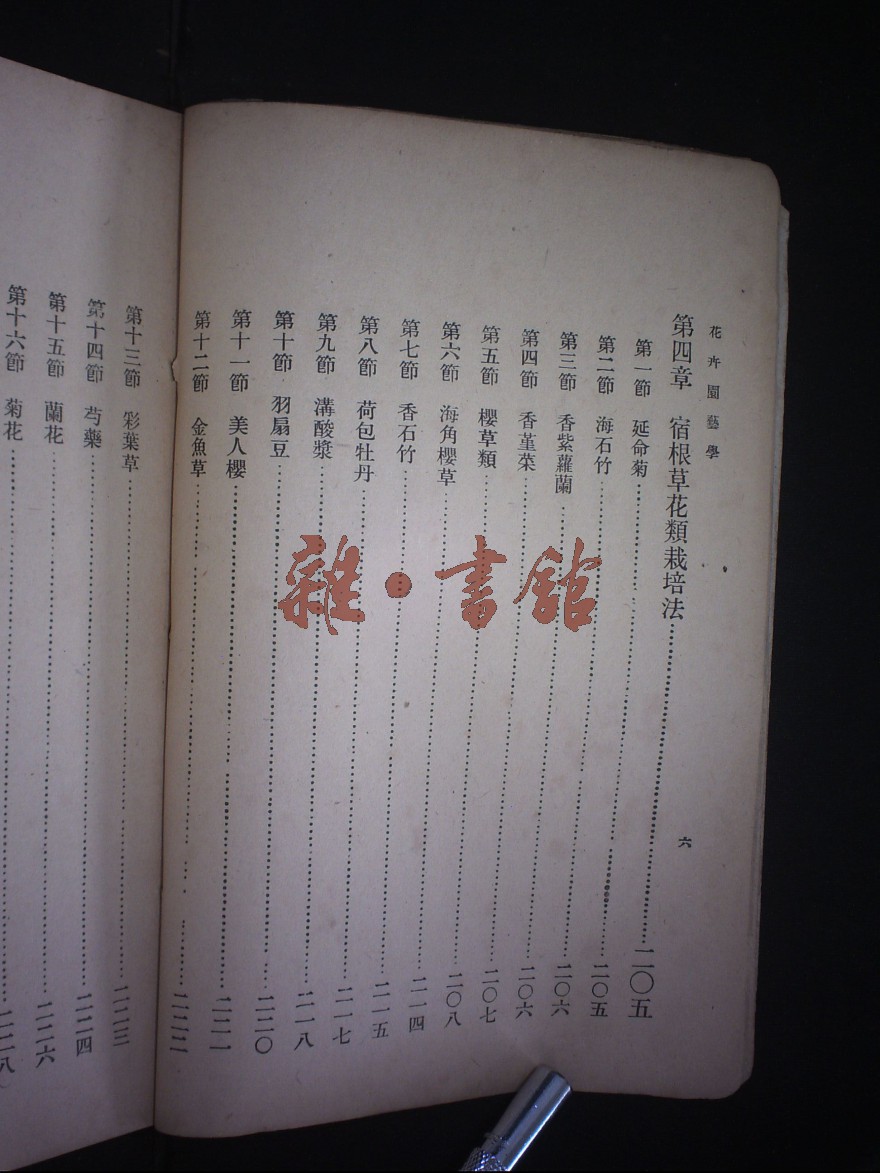 花卉園藝學
六
第四章 宿根草花類栽培法……二〇五
第一節 延命菊……二〇五
第二節 海石竹……二〇六
第三節 香紫蘿蘭……二〇六
第四節 香堇菜……二〇七
第五節 櫻草類……二〇八
第六節 海角櫻草……二一四
第七節 香石竹……二一五
第八節 荷包牡丹……二一七
第九節 溝酸漿……二一八
第十節 羽扇豆……二二〇
第十一節 美人櫻……二二一
第十二節 金魚草……二二二
第十三節 彩葉草……二二三
第十四節 芍藥……二二四
第十五節 蘭花……二二六
第十六節 菊花……二二八
雜·書館